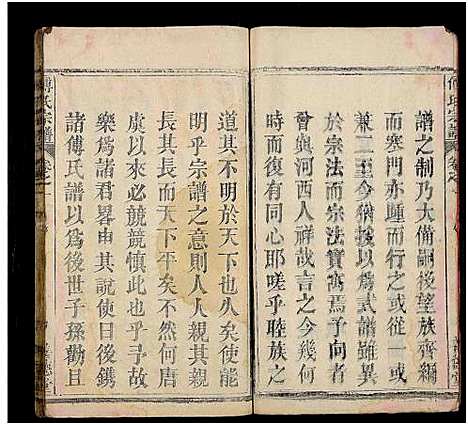 譜之制乃大備嗣後望族齊編
而寒門亦踵而行之或從一或
兼二至今猶援以為式譜雖異
於宗法而宗法實寓焉予向者
曾與河西人祥哉言之今幾何
時而復有同心耶嗟乎睦族之
傅氏宗譜
卷之一
道其不明於天下也久矣使能
明乎宗譜之意則人人親其親
長其長而天下平矣不然何唐
虞以來必兢兢慎此也乎予故
樂為諸君畧由其說使日後鐫
諸傅氏譜以為後世子孫勸且